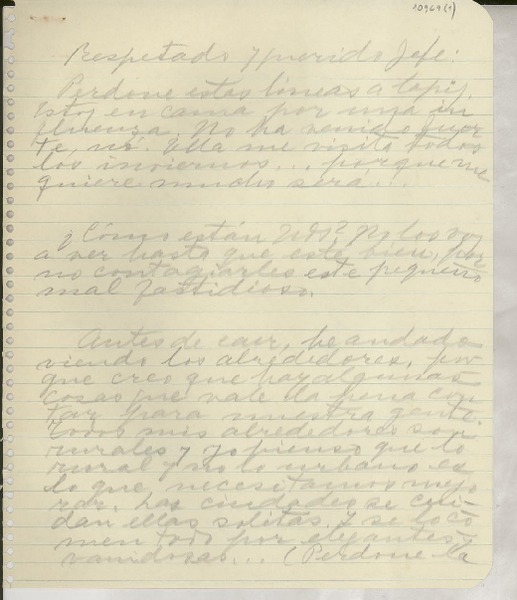 10969(1)
Respetado y querido Jefe:
Perdone estas líneas a lápiz,
estoy en cama por una in
fluenza. No ha venido fuer
te, no. Ella me visita todos
los inviernos... porque me
quiere mucho será...
¿Cómo están Uds? No los voy
a ver hasta que esté bien, por
no contagiarles este pequeño
mal fastidioso.
Antes de caer, he andado
viendo los alrededores, por
que creo que hay algunas
cosas que vale la pena con
tar para nuestra gente.
Todos mis alrededores son
rurales y yo pienso que lo
rural y no lo urbano es
lo que necesitamos mejo
rar. Las ciudades se cui
dan ellas solitas. Y se lo co
men todo por elegantes y
vanidosas... (Perdone la